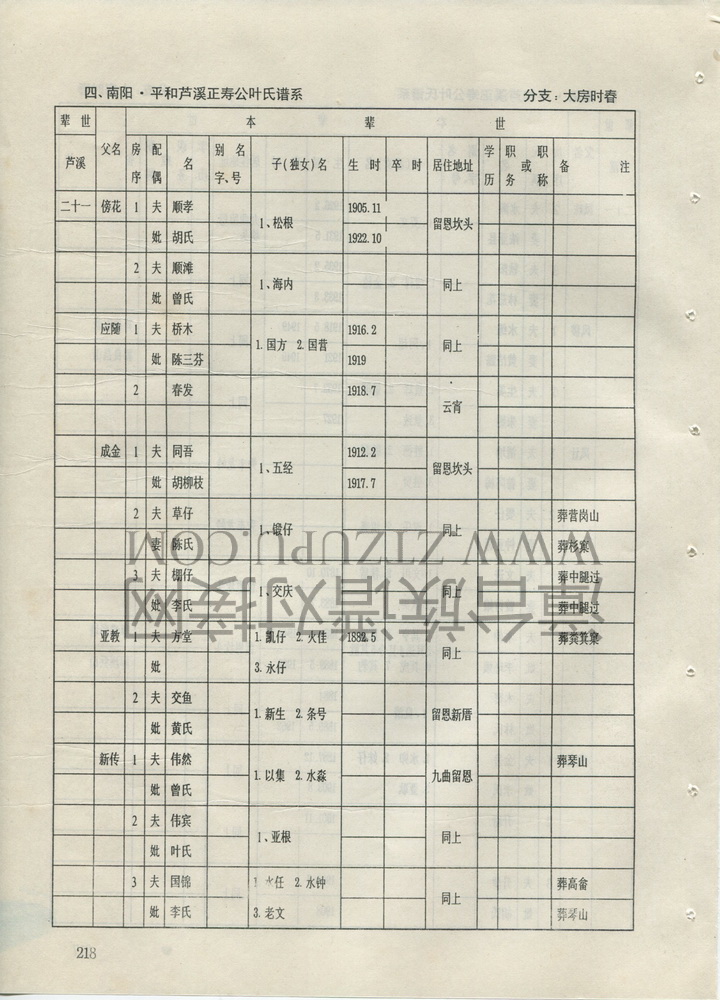 四、南阳·平和芦溪正寿公叶氏谱系 分支：大房时春
辈世 本 辈 世
芦溪 父名 房序 配偶 名 别名字、号 子(独女)名 生时 卒时 居住地址 学历 职务或职称 备注
二十一 傍花 1 夫 顺孝 1、松根 1905.11 留恩坎头
妣 胡氏 1922.10
2 夫 顺滩 1、海内 同上
妣 曾氏
应随 1 夫 桥木 1.国方 2.国营 1916.2 同上
妣 陈三芬 1919
2 春发 1918.7 云宵
成金 1 夫 同吾 1、五经 1912.2 留恩坎头
妣 胡柳枝 1917.7
2 夫 草仔 1、锻仔 同上 葬营岗山
妻 陈氏 葬杉窠
3 夫 棚仔 1、交庆 同上 葬中腿过
妣 李氏 葬中腿过
亚教 1 夫 方堂 1.凯仔 2.火佳 1882.5 同上 葬粪箕窠
妣 3.永仔
2 夫 交鱼 1.新生 2.条号 留恩新厝
妣 黄氏
新传 1 夫 伟然 1.以集 2.水淼 九曲留恩 葬琴山
妣 曾氏
2 夫 伟宾 1、亚根 同上
妣 叶氏
3 夫 国锦 1.火任 2.水钟 同上 葬高畲
妣 李氏 3.老文 葬琴山
218
漳台族谱对接网
WWW.ZTZUPU.COM